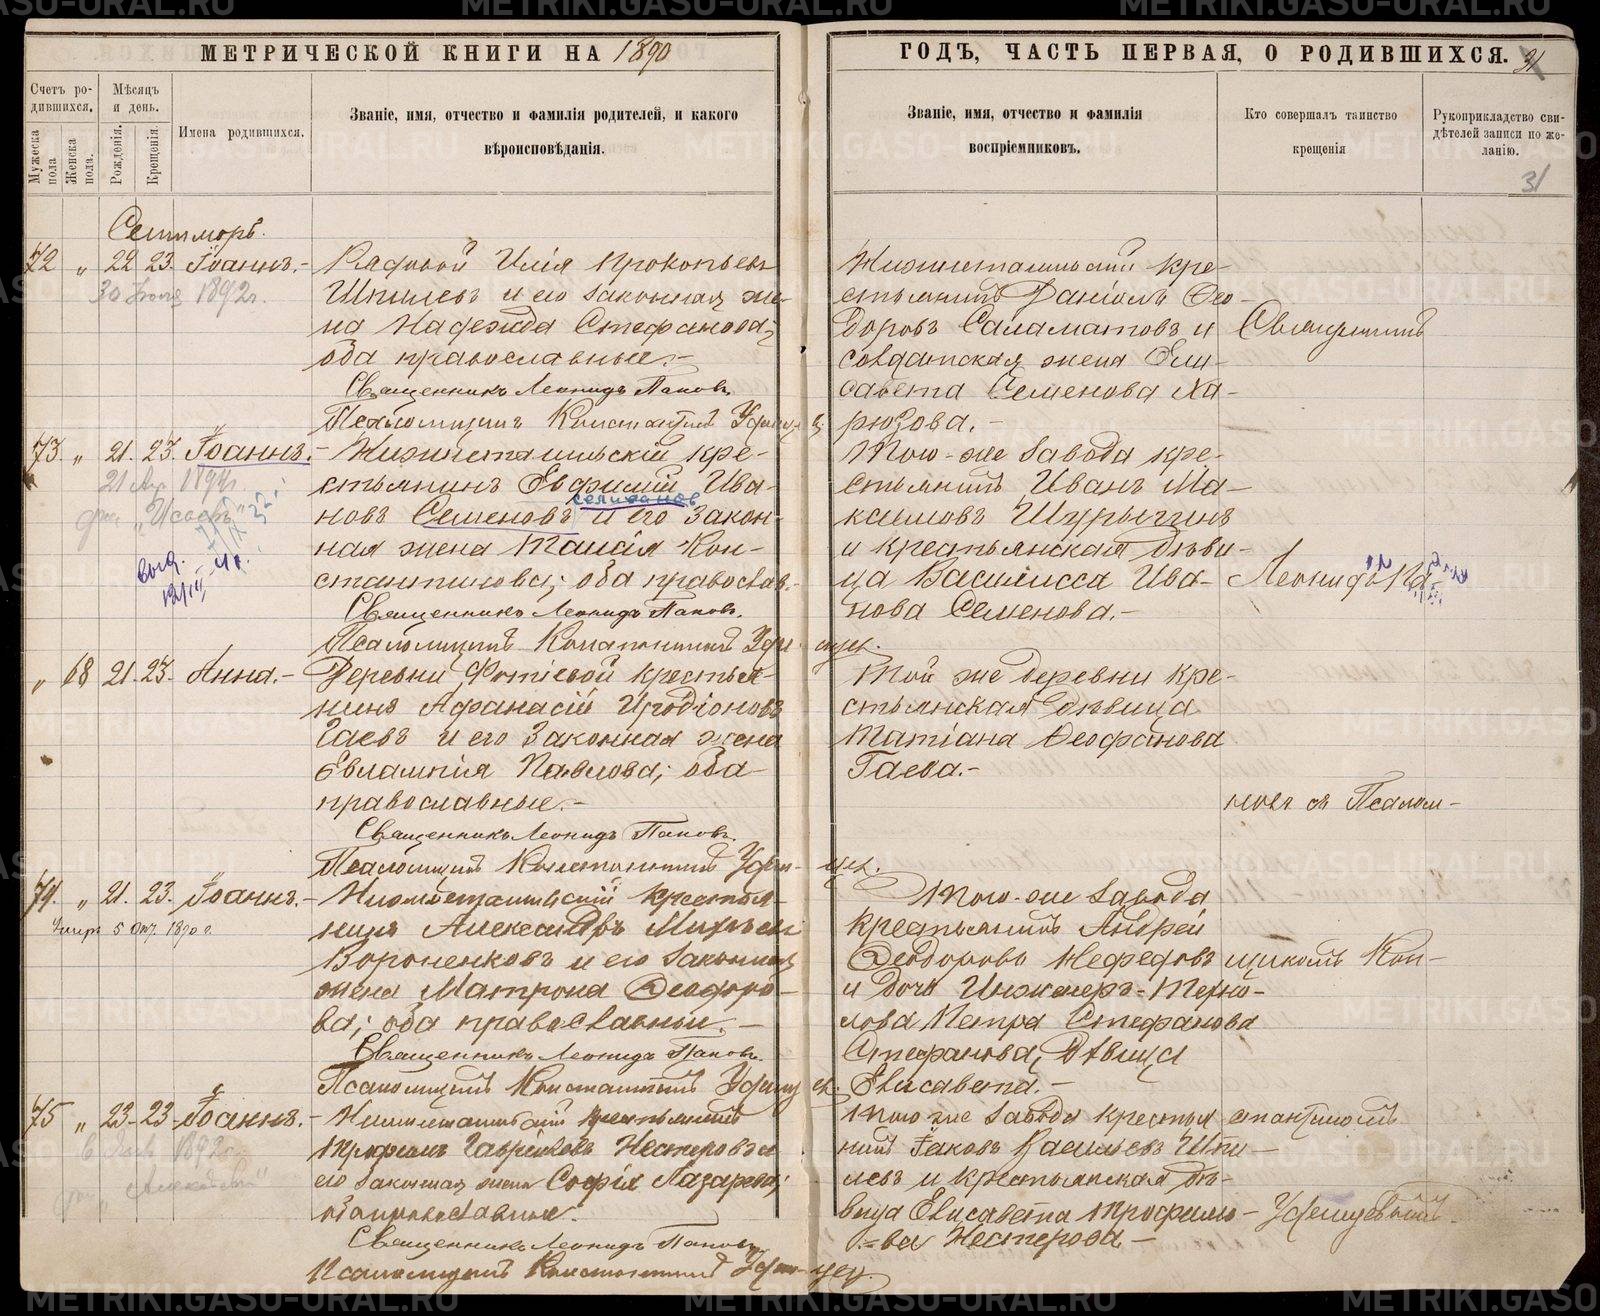 МЕТРИЧЕСКОЙ КНИГИ НА 1890
ГОДЪ, ЧАСТЬ ПЕРВАЯ, О РОДИВШИХСЯ. 31
Счетъ ро-
дившихся.
Мужеска пола.
Женска пола.
Мѣсяцъ
и день.
Рожденія.
Крещенія.
Имена родившихся.
Званіе, имя, отчество и фамилія родителей, и какого
вѣроисповѣданія.
Званіе, имя, отчество и фамилія
воспріемниковъ.
Кто совершалъ таинство
крещенія
Рукоприкладство сви-
дѣтелей записи по же-
ланію.
31
72 „ 22 23. Іоаннъ.-
1892г.
Рядовой Илія Прокопьевъ
Шпилевъ и его законная же-
на Надежда Стефанова;
оба православные.-
Священникъ Леонидъ Поповъ.
Псаломщикъ Константинъ
Нижнетагильскій кре-
стьянинъ Даніилъ Ѳео-
доровъ Саламатовъ и
солдатская жена Ели-
савета Семенова Ха-
рюзова.-
Священникъ
73. „ 21. 23. Іоаннъ.-
21
Нижнетагильскій кре-
стьянинъ Евфимій Ива-
селиванов
новъ Семеновъ и его закон-
ная жена Таисія Кон-
стантинова; оба православ.
Священникъ Леонидъ Поповъ.
Псаломщикъ Константинъ
Того-же завода кре-
стьянинъ Иванъ Ма-
ксимовъ Шурыгинъ
и крестьянская дѣви-
ца Василисса Ива-
нова Семенова.-
Леонидъ По-
„ 68 21. 23. Анна.-
Деревни Фотіевой крестья-
нинъ Афанасій Иродіоновъ
Гаевъ и его законная жена
Евлампія Павлова; оба
православные.-
Священникъ Леонидъ Поповъ.
Псаломщикъ Константинъ
Той же деревни кре-
стьянская дѣвица
Татіана Ѳеофанова
Гаева.-
повъ съ Псалом-
74. „ 21. 23. Іоаннъ.-
5 Окт. 1890 г.
Нижнетагильскій крестья-
нинъ Александръ
Вороненковъ и его законная
жена Матрона Ѳеодоро-
ва; оба православные.-
Священникъ Леонидъ Поповъ.
Псаломщикъ Константинъ
Того-же завода
крестьянинъ Андрей
Ѳеодоровъ Нефедовъ
и дочь Инженеръ-Техно-
лога Петра Стефанова
Стефанова, дѣвица
Елисавета.-
щикомъ Кон-
75 „ 23. 23. Іоаннъ.-
1892г.
Нижнетагильскій крестьянинъ
Трофимъ Гавріиловъ Нестеровъ и
его законная жена Софія Лазарева;
оба православные.
Священникъ Леонидъ Поповъ.
Псаломщикъ Константинъ
Того же завода крестья
нинъ Іаковъ Васильевъ Шпи-
левъ и крестьянская дѣ-
вица Елисавета Трофимо-
ва Нестерова.-
стантиномъ
METRIKI.GASO-URAL.RU